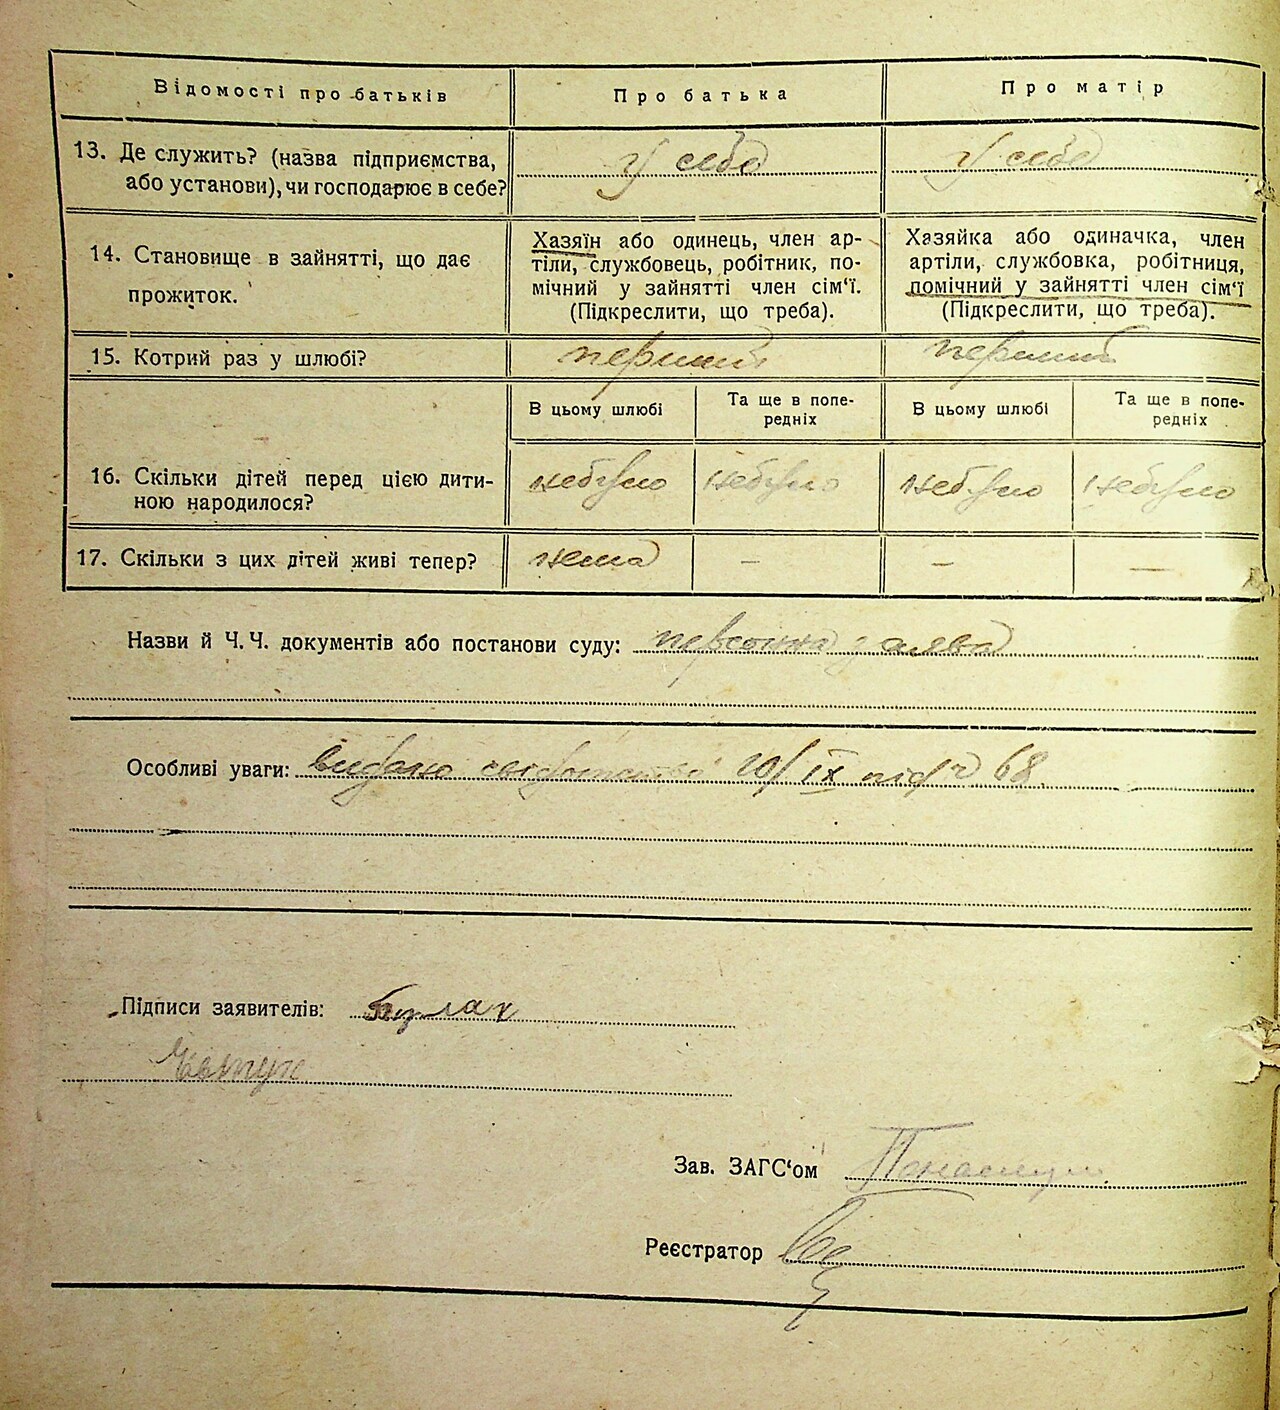 Відомості про батьків
Про батька
Про матір
13. Де служить? (назва підприємства,
або установи), чи господарює в себе?
у себе
у себе
14. Становище в зайнятті, що дає
прожиток.
Хазяїн або одинець, член ар-
тіли, службовець, робітник, по-
мічний у зайнятті член сім'ї.
(Підкреслити, що треба).
Хазяйка або одиначка, член
артіли, службовка, робітниця,
помічний у зайнятті член сім'ї
(Підкреслити, що треба).
15. Котрий раз у шлюбі?
перший
перший
В цьому шлюбі
Та ще в попе-
редніх
В цьому шлюбі
Та ще в попе-
редніх
16. Скільки дітей перед цією дити-
ною народилося?
небуло
небуло
небуло
небуло
17. Скільки з цих дітей живі тепер?
нема
–
–
–
Назви й Ч.Ч. документів або постанови суду: персона заява
Особливі уваги: видано свідоцтво 20/IX під ч 68
Підписи заявителів: Булах
Євтух
Зав. ЗАГС'ом
Реєстратор